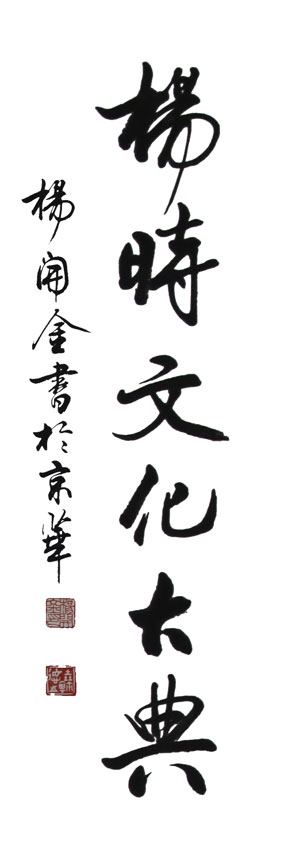 楊時文化大典
楊開金書於京華